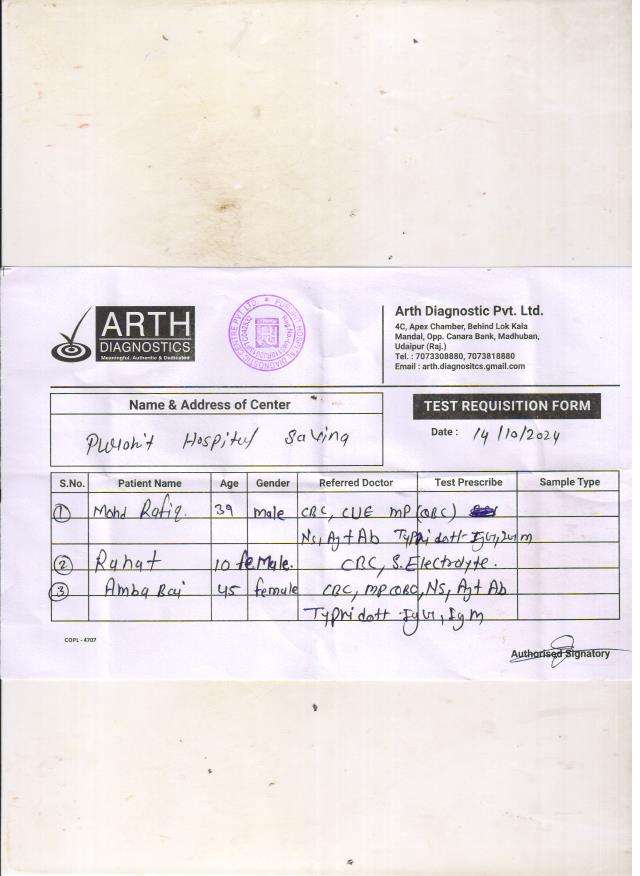 ARTH
DIAGNOSTICS
Meaningful, Authentic & Dedicated
Arth Diagnostic Pvt. Ltd.
4C, Apex Chamber, Behind Lok Kala
Mandal, Opp. Canara Bank, Madhuban,
Udaipur (Raj.)
Tel. : 7073308880, 7073818880
Email : arth.diagnositcs.gmail.com
Name & Address of Center
TEST REQUISITION FORM
Purohit Hospital Saving
Date : 14/10/2024
S.No. Patient Name Age Gender Referred Doctor Test Prescribe Sample Type
1 Mohd Rafiq. 39 male CBC, CUE MP (QBC)
Ns, Ag+Ab Typhi dott-IgG, IgM
2 Rahat 10 feMale. CBC, S. Electrolyte.
3 Amba Bai 45 female CBC, MP(QBC), Ns, Ag+ Ab
Typhi dott-IgG, IgM
COPL - 4707
Authorised Signatory